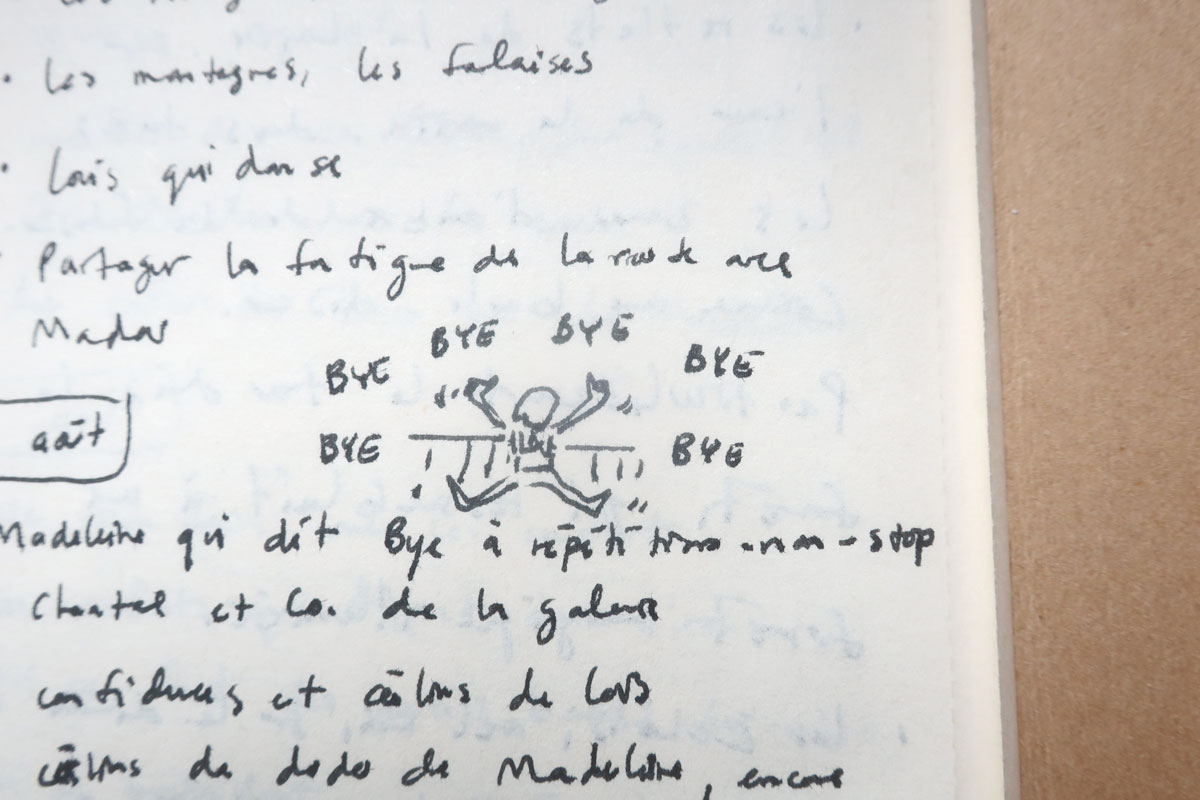 • Les montagnes, les falaises
• Loïs qui danse
Partager la fatigue de la route avec
Mado
BYE BYE BYE BYE
BYE BYE
août
Madeleine qui dit Bye à répétition - non - stop
Chantal et Co. de la galerie
confidences et câlins de Loïs
câlins de dodo de Madeleine, encore